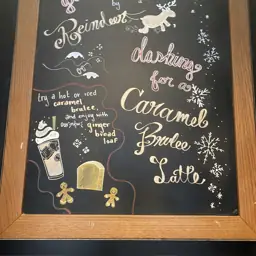 by
Reindeer
dashing
for a
Caramel
Brulee
Latte
try a hot or iced
caramel
brulee,
and enjoy with
ginger
bread
loaf